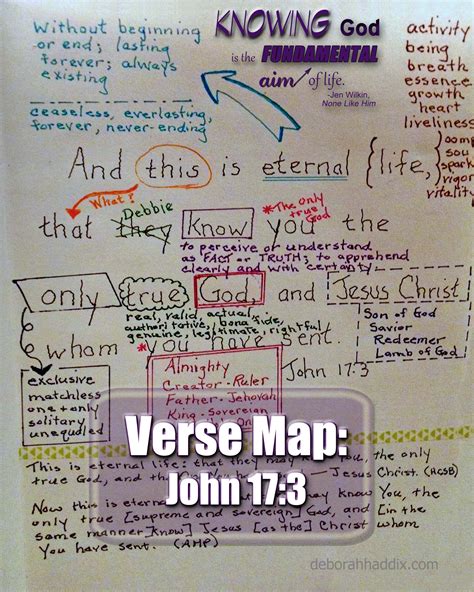 KNOWING God
is the FUNDAMENTAL
aim of life.
-Jen Wilkin,
None Like Him
Without beginning
or end; lasting
forever; always
existing
ceaseless, everlasting,
forever, never-ending
activity
being
breath
essence
growth
heart
liveliness
oomp
sou
spark
vigor
vitality
And this is eternal life,
What?
Debbie
*The only
true God
that they know you the
to perceive or understand
as FACT or TRUTH; to apprehend
clearly and with certainty
only true God, and Jesus Christ
real, valid, actual,
authoritative, bona fide,
genuine, legitimate, rightful
Son of God
Savior
Redeemer
Lamb of God
whom *you have sent.
John 17:3
exclusive
matchless
one + only
solitary
unequaled
Almighty
Creator - Ruler
Father - Jehovah
King - Sovereign
Verse Map:
John 17:3
This is eternal life: that they may know You, the only
true God, and the One You have sent — Jesus Christ. (HCSB)
Now this is eternal life: that they may know You, the
only true [supreme and sovereign] God, and [in the
same manner know] Jesus [as the] Christ whom
You have sent. (AMP)
deborahhaddix.com